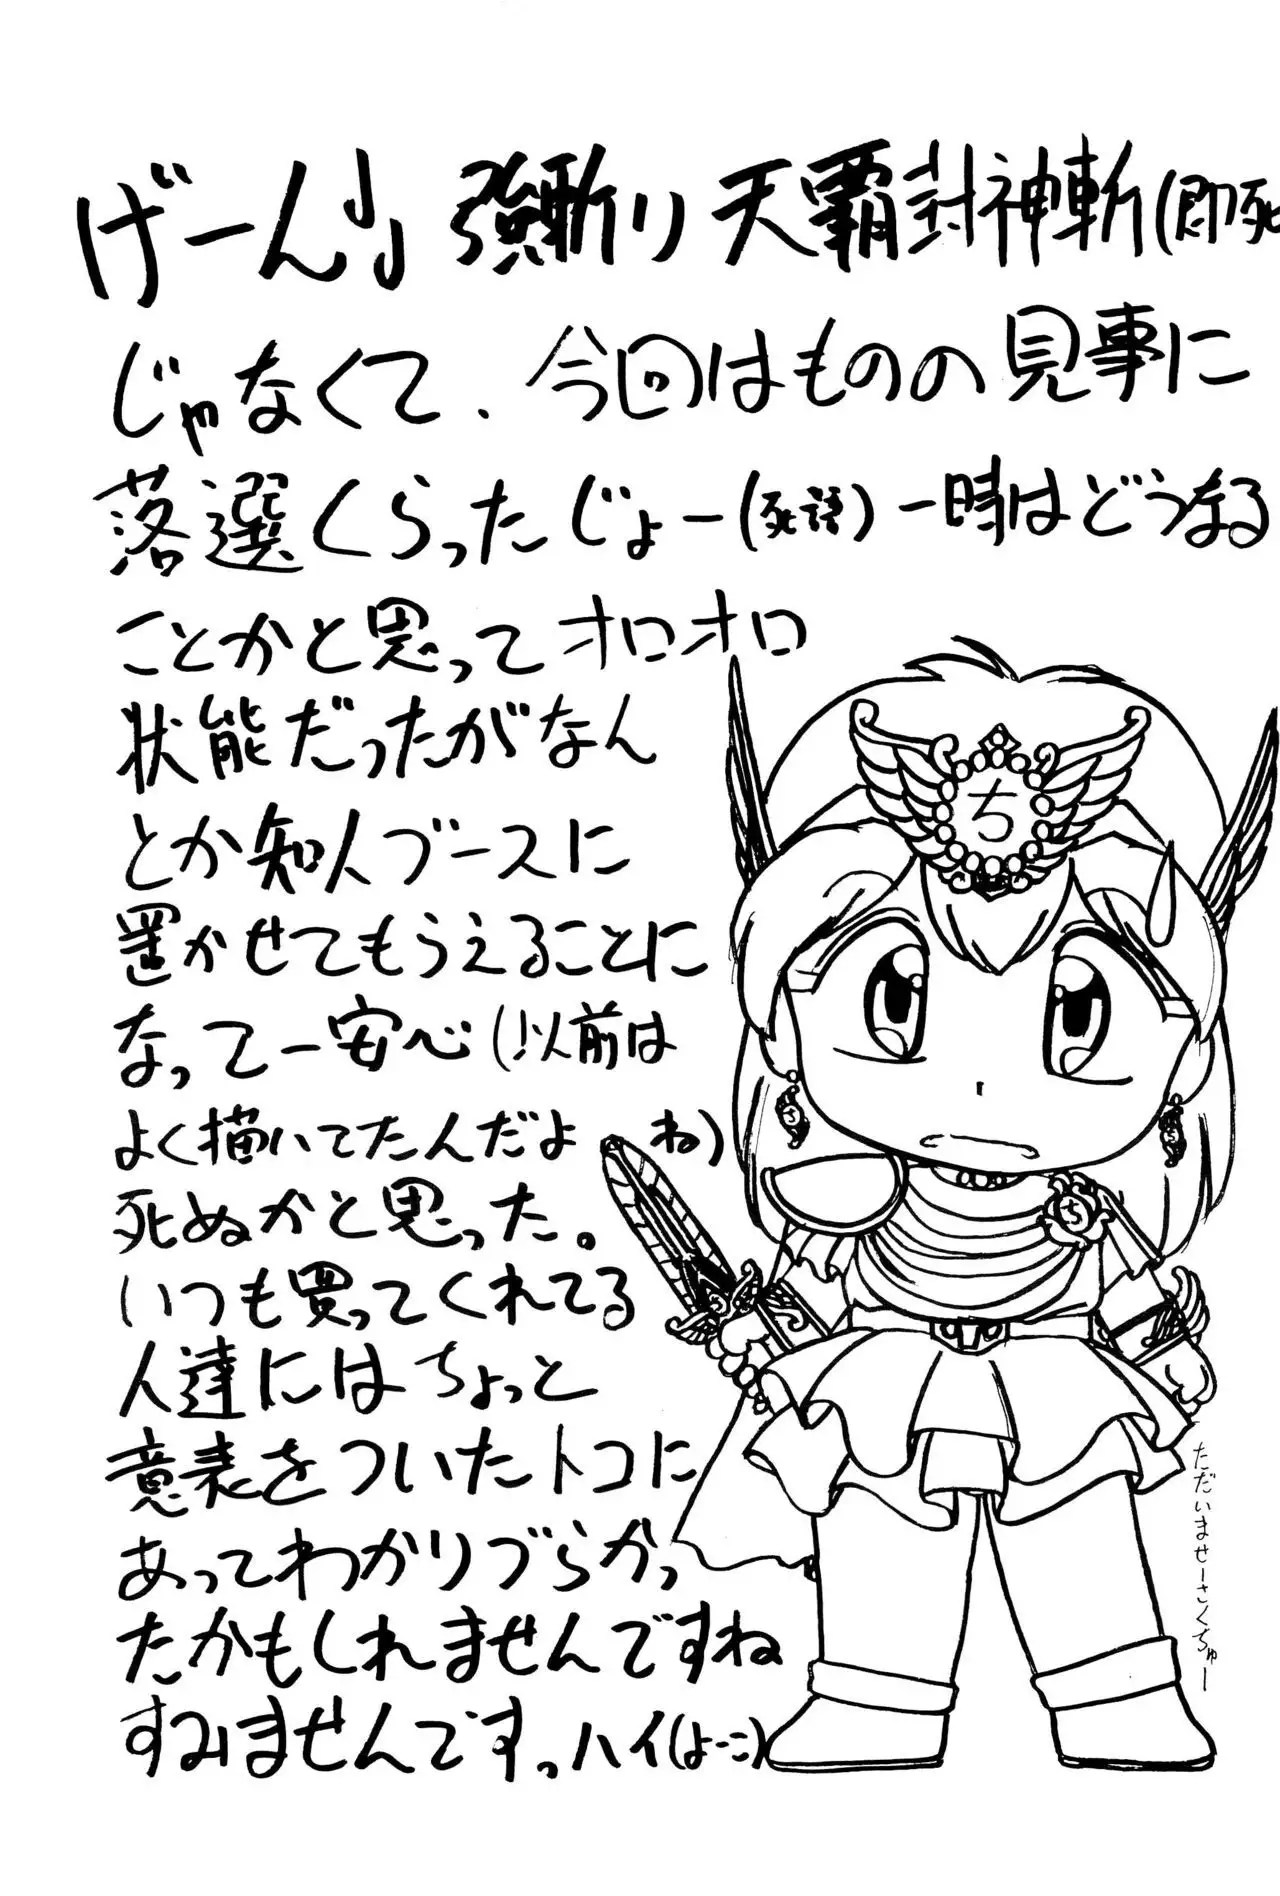 げーん♩ 強斬り 天覇封神斬(即死
じゃなくて、今回はものの見事に
落選くらったじょー(死語) 一時はどうなる
ことかと思ってオロオロ
状態だったがなん
とか知人ブースに
置かせてもらえることに
なって一安心(以前は
よく描いてたんだよね)
死ぬかと思った。
いつも買ってくれてる
人達にはちょっと
意表をついたトコに
あってわかりづらかっ
たかもしれませんですね
すみませんですっハイ(よーこ)
ち
ち
ち
ち
ただいませーさくちゅー